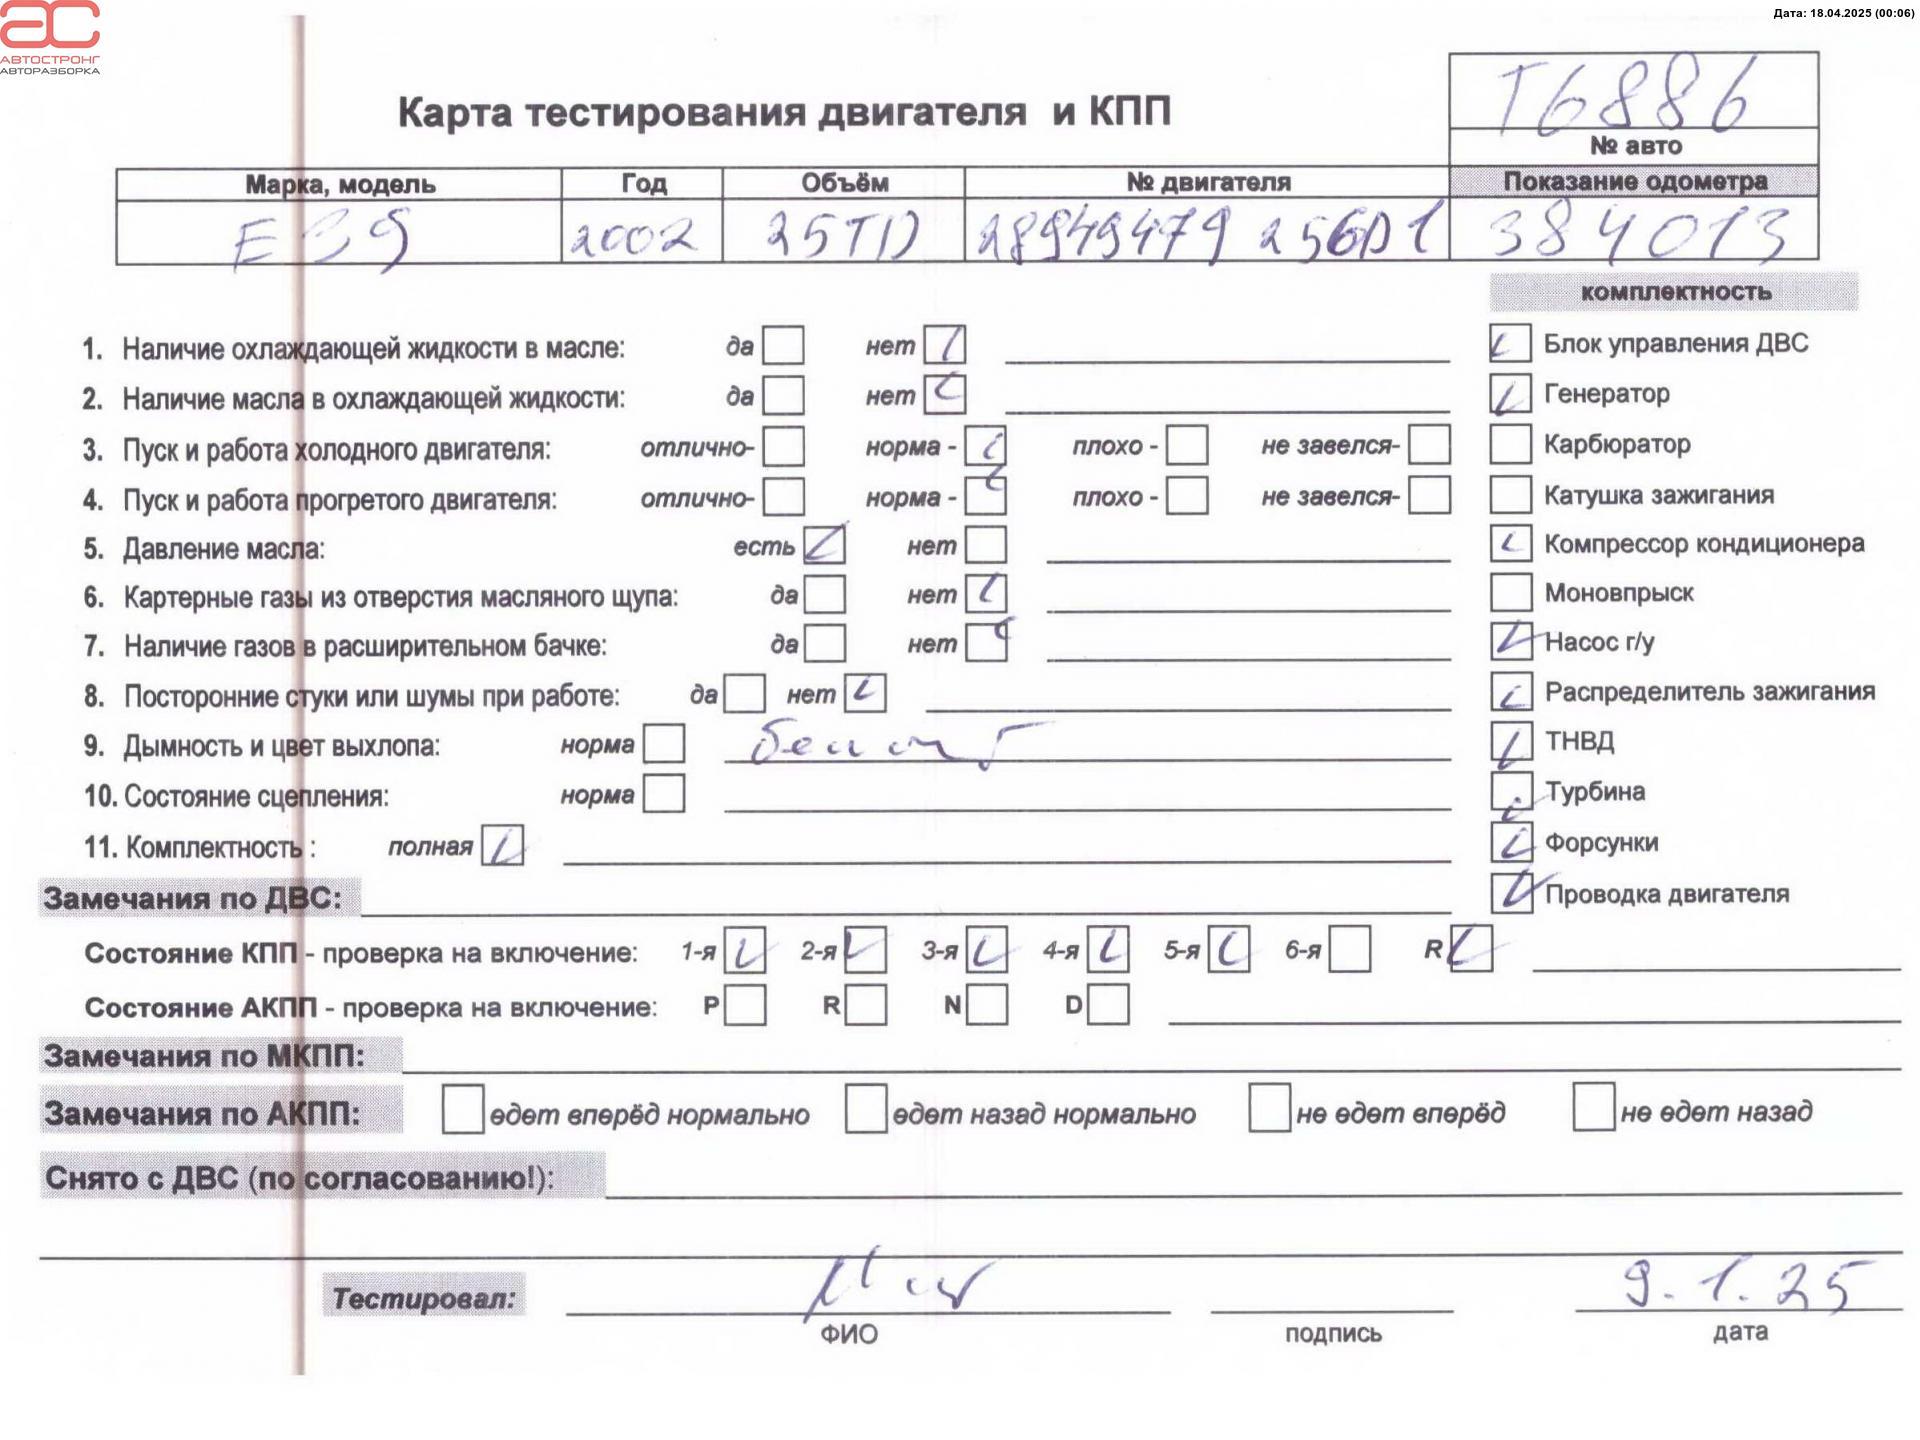 АС
АВТОСТРОНГ
АВТОРАЗБОРКА
Дата: 18.04.2025 (00:06)
Т6886
Карта тестирования двигателя и КПП
№ авто
Марка, модель Год Объём № двигателя Показание одометра
E39 2002 25TD 28949479 256D1 384013
комплектность
1. Наличие охлаждающей жидкости в масле: да нет Блок управления ДВС
2. Наличие масла в охлаждающей жидкости: да нет Генератор
3. Пуск и работа холодного двигателя: отлично- норма - плохо - не завелся- Карбюратор
4. Пуск и работа прогретого двигателя: отлично- норма - плохо - не завелся- Катушка зажигания
5. Давление масла: есть нет Компрессор кондиционера
6. Картерные газы из отверстия масляного щупа: да нет Моновпрыск
7. Наличие газов в расширительном бачке: да нет Насос г/у
8. Посторонние стуки или шумы при работе: да нет Распределитель зажигания
9. Дымность и цвет выхлопа: норма ТНВД
10. Состояние сцепления: норма Турбина
11. Комплектность : полная Форсунки
Замечания по ДВС: Проводка двигателя
Состояние КПП - проверка на включение: 1-я 2-я 3-я 4-я 5-я 6-я R
Состояние АКПП - проверка на включение: P R N D
Замечания по МКПП:
Замечания по АКПП: едет вперёд нормально едет назад нормально не едет вперёд не едет назад
Снято с ДВС (по согласованию!):
Тестировал: 9.1.25
ФИО подпись дата